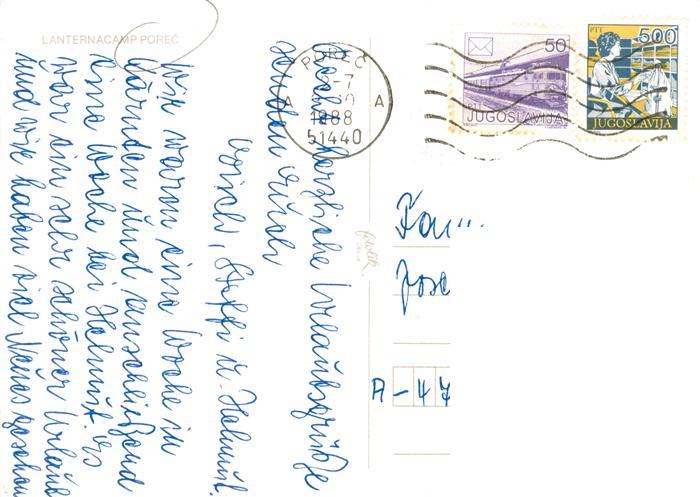 LANTERNACAMP POREČ
herzliche Urlaubsgrüße
senden Euch
Erich, Steffi u. Helmut.
Wir waren eine Woche in
Kärnten und anschließend
eine Woche bei Helmut. Es
war ein sehr schöner Urlaub
und wir haben viel Neues gesehen
POREČ
1988
A A
51440
50
PTT
JUGOSLAVIJA
PTT 500
JUGOSLAVIJA
Fam...
Jose
A-47